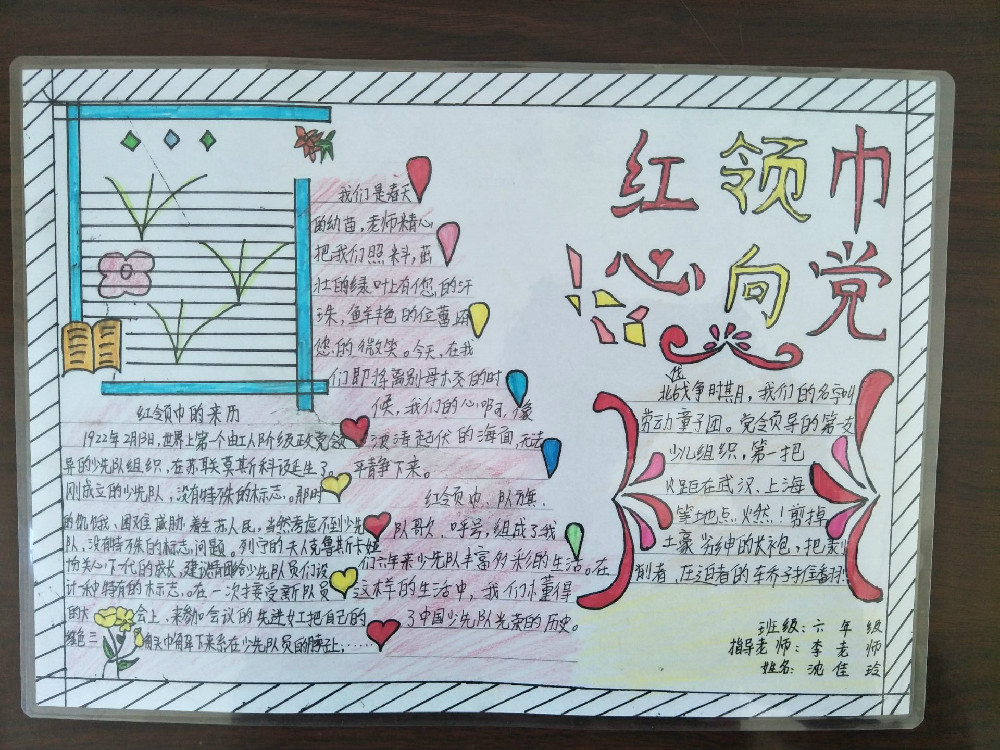 红领巾
心向党
我们是春天
的幼苗,老师精心
把我们照料,茁
壮的绿叶上有您的汗
珠,鲜艳的花蕾
您的微笑。今天,在我
们即将离别母校的时
候,我们的心啊,像
波涛起伏的海面,无法
平静下来。
红领巾、队旗、
队歌、呼号,组成了我
们六年来少先队丰富多彩的生活。在
这样的生活中,我们懂得
了中国少先队光荣的历史。
红领巾的来历
1922年2月13日,世界上第一个由工人阶级政党领
导的少先队组织,在苏联莫斯科诞生了。
刚成立的少先队,没有特殊的标志。那时
的饥饿、困难威胁着苏人民,当然考虑不到少先
队,没有特殊的标志,问题。列宁的夫人克鲁斯卡娅
关心下一代的成长,建议请给少先队员们设
计一种特有的标志。在一次接受新队员
的大会上,来参加会议的先进女工把自己的
绿色三角头巾解下来系在少先队员的脖子上,……
北伐战争时期,我们的名字叫
劳动童子团。党领导的第一支
少儿组织,第一把
火炬在武汉、上海
等地点火燃!剪掉
土豪劣绅的长袍,把剥
削者,压迫者的车乔子推翻
班级:六年级
指导老师:李老师
姓名:沈佳玲